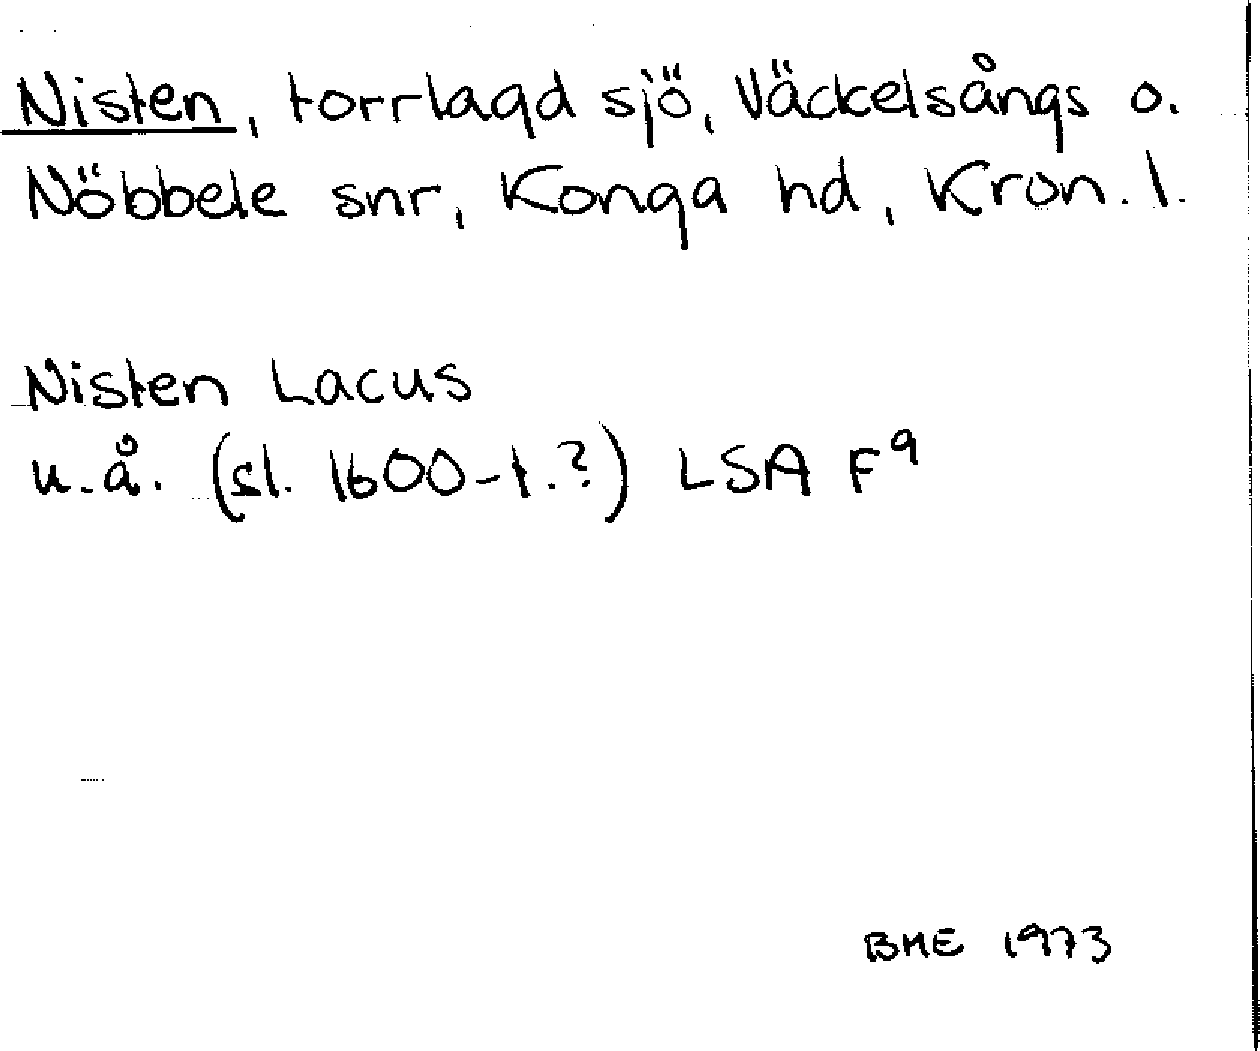 Nisten, torrlagd sjö, Väckelsångs o.
Nöbbele snr, Konga hd, Kron. l.
Nisten Lacus
u.å. (sl. 1600-t.?) LSA F⁹
BME 1973